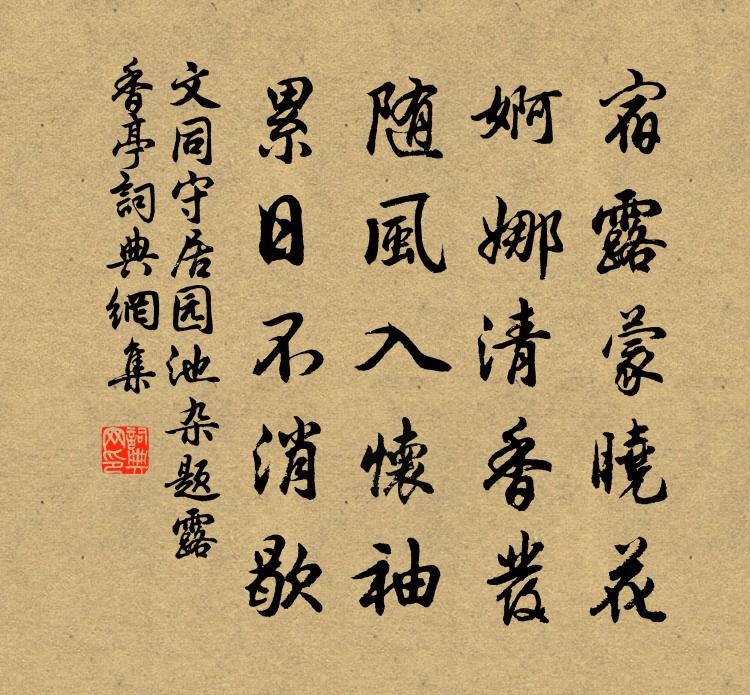 宿露蒙曉花
婀娜清香發
随風入懷袖
累日不消歇
文同守居园池杂题露
香亭詞典網集
詞典網印